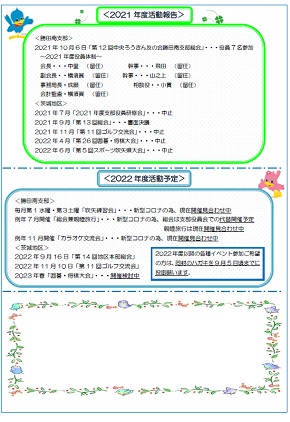 ＜2021年度活動報告＞
＜勝田南支部＞
2021年10月6日「第12回中央ろうきん友の会勝田南支部総会」・・・役員7名参加
～2021年度役員体制～
会長・・・中里 （留任） 幹事・・・飛田 （留任）
副会長・・・横須賀 （留任） 幹事・・・山之上 （留任）
事務局長・成嶋 （留任） 相談役・・小貫 （留任）
会計監査・横須賀 （留任）
＜茨城地区＞
2021年7月「2021年度支部役員研修会」・・・中止
2021年9月「第13回総会」・・・書面決議
2021年11月「第11回ゴルフ交流会」・・・中止
2022年4月「第26回囲碁・将棋大会」・・・中止
2022年6月「第5回スポーツ吹矢県大会」・・・中止
＜2022年度活動予定＞
＜勝田南支部＞
毎月第1水曜・第3土曜「吹矢練習会」・・・新型コロナの為、現在開催見合わせ中
例年7月開催「総会兼親睦旅行」・・・新型コロナの為、総会は支部役員会での代替開催予定
親睦旅行は現在開催見合わせ中
例年11月開催「カラオケ交流会」・・・新型コロナの為、現在開催見合わせ中
＜茨城地区＞
2022年9月16日「第14回地区本部総会」
2022年11月10日「第11回ゴルフ交流会」
2023年春「囲碁・将棋大会」・・・開催検討中
2022年度以降の各種イベント参加ご希望
の方は、同封のハガキを9月5日頃までに
投函願います。